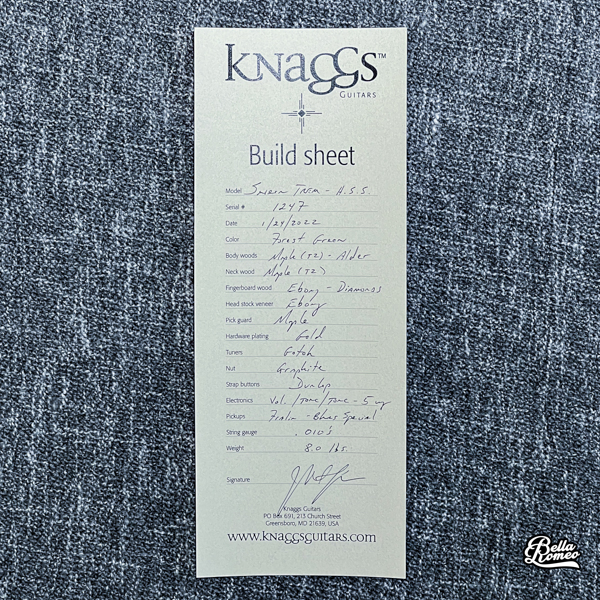 Knaggs™
Guitars
Build sheet
Model Severn Trem - H.S.S.
Serial # 1247
Date 1/24/2022
Color Forest Green
Body woods Maple (T2) - Alder
Neck wood Maple (T2)
Fingerboard wood Ebony - Diamonds
Head stock veneer Ebony
Pick guard Maple
Hardware plating Gold
Tuners Gotoh
Nut Graphite
Strap buttons Dunlop
Electronics Vol./Tone/Tone - 5 wy
Pickups Fralin - Blues Special
String gauge .010's
Weight 8.0 lbs.
Signature
Knaggs Guitars
PO Box 691, 213 Church Street
Greensboro, MD 21639, USA
www.knaggsguitars.com
Bella
Romeo